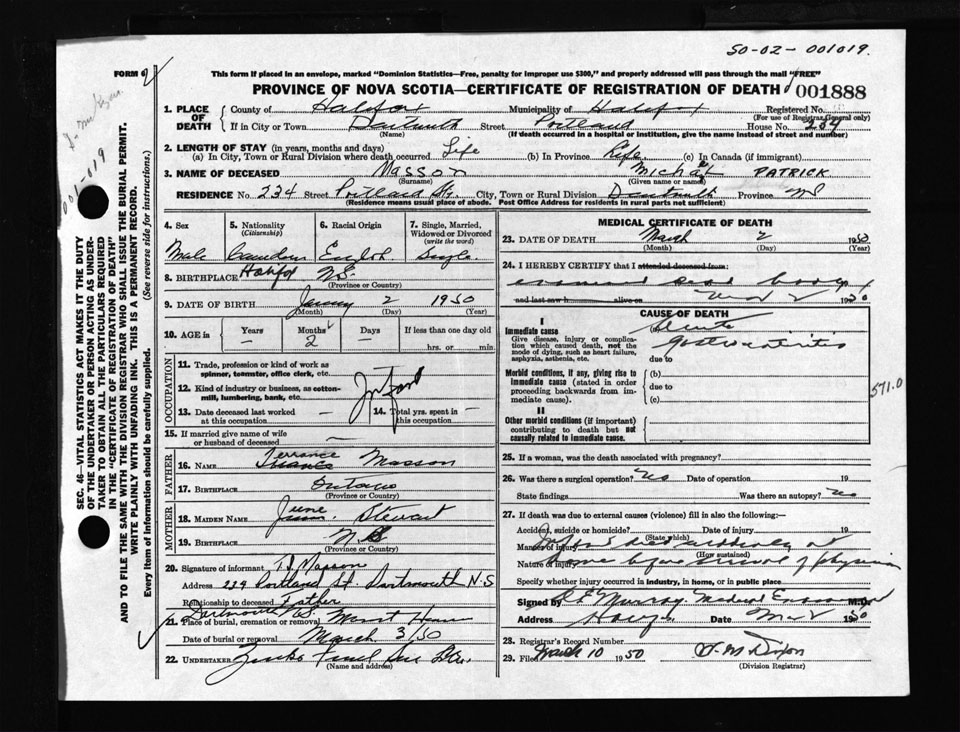 50-02-001019.
FORM 6
This form if placed in an envelope, marked "Dominion Statistics—Free, penalty for improper use $300," and properly addressed will pass through the mail "FREE"
PROVINCE OF NOVA SCOTIA—CERTIFICATE OF REGISTRATION OF DEATH 001888
1. PLACE OF DEATH
County of Halifax Municipality of Halifax Registered No.
(For use of Registrar General only)
If in City or Town Dartmouth Street Portland House No. 234
(Name) (If death occurred in a hospital or institution, give the name instead of street and number)
2. LENGTH OF STAY (in years, months and days)
(a) In City, Town or Rural Division where death occurred Life (b) In Province Life (c) In Canada (if immigrant)
3. NAME OF DECEASED Masson Michael PATRICK
(Surname) (Given name or names)
RESIDENCE No. 234 Street Portland St. City, Town or Rural Division Dartmouth Province NS
(Residence means usual place of abode. Post Office Address for residents in rural parts not sufficient)
4. Sex
Male
5. Nationality
(Citizenship)
Canadian
6. Racial Origin
English
7. Single, Married, Widowed or Divorced
(write the word)
Single
8. BIRTHPLACE Halifax NS.
(Province or Country)
9. DATE OF BIRTH January 2 1950
(Month) (Day) (Year)
10. AGE in Years Months Days If less than one day old
— 2 — hrs. or min.
OCCUPATION
11. Trade, profession or kind of work as spinner, teamster, office clerk, etc.
12. Kind of industry or business, as cotton-mill, lumbering, bank, etc.
Infant
13. Date deceased last worked at this occupation — 14. Total yrs. spent in this occupation —
15. If married give name of wife or husband of deceased —
FATHER
Terrance
16. NAME Masson
17. BIRTHPLACE Ontario
(Province or Country)
MOTHER
June
18. MAIDEN NAME Stewart
19. BIRTHPLACE
(Province or Country)
20. Signature of informant T.J. Masson
Address 234 Portland St. Dartmouth N.S
Relationship to deceased Father
Dartmouth N.S.
21. Place of burial, cremation or removal Mount
Date of burial or removal March 3/50
22. UNDERTAKER
(Name and address)
MEDICAL CERTIFICATE OF DEATH
23. DATE OF DEATH March 2 1950
(Month) (Day) (Year)
24. I HEREBY CERTIFY that I attended deceased from:
examined dead body
and last saw h alive on Mar 2 1950
CAUSE OF DEATH
I
Immediate cause
Give disease, injury or complication which caused death, not the mode of dying, such as heart failure, asphyxia, asthenia, etc.
(a) Acute
gastroenteritis
due to
Morbid conditions, if any, giving rise to immediate cause (stated in order proceeding backwards from immediate cause).
(b)
due to
(c)
571.0
II
Other morbid conditions (if important) contributing to death but not causally related to immediate cause.
25. If a woman, was the death associated with pregnancy?
26. Was there a surgical operation? No Date of operation 19
State findings Was there an autopsy? No
27. If death was due to external causes (violence) fill in also the following:—
Accident, suicide or homicide? Date of injury 19
(State which)
Manner of injury Infant died suddenly at
(How sustained)
Nature of injury home before arrival of physician
Specify whether injury occurred in industry, in home, or in public place
Signed by Murray Medical Examiner M.D.
Address Date Mar 2 1950
28. Registrar's Record Number
29. Filed March 10 1950
(Division Registrar)
001-019
SEC. 46—VITAL STATISTICS ACT MAKES IT THE DUTY OF THE UNDERTAKER OR PERSON ACTING AS UNDERTAKER TO OBTAIN ALL THE PARTICULARS REQUIRED IN THE "CERTIFICATE OF REGISTRATION OF DEATH"
AND TO FILE THE SAME WITH THE DIVISION REGISTRAR WHO SHALL ISSUE THE BURIAL PERMIT.
WRITE PLAINLY WITH UNFADING INK. THIS IS A PERMANENT RECORD.
Every item of Information should be carefully supplied. (See reverse side for instructions.)